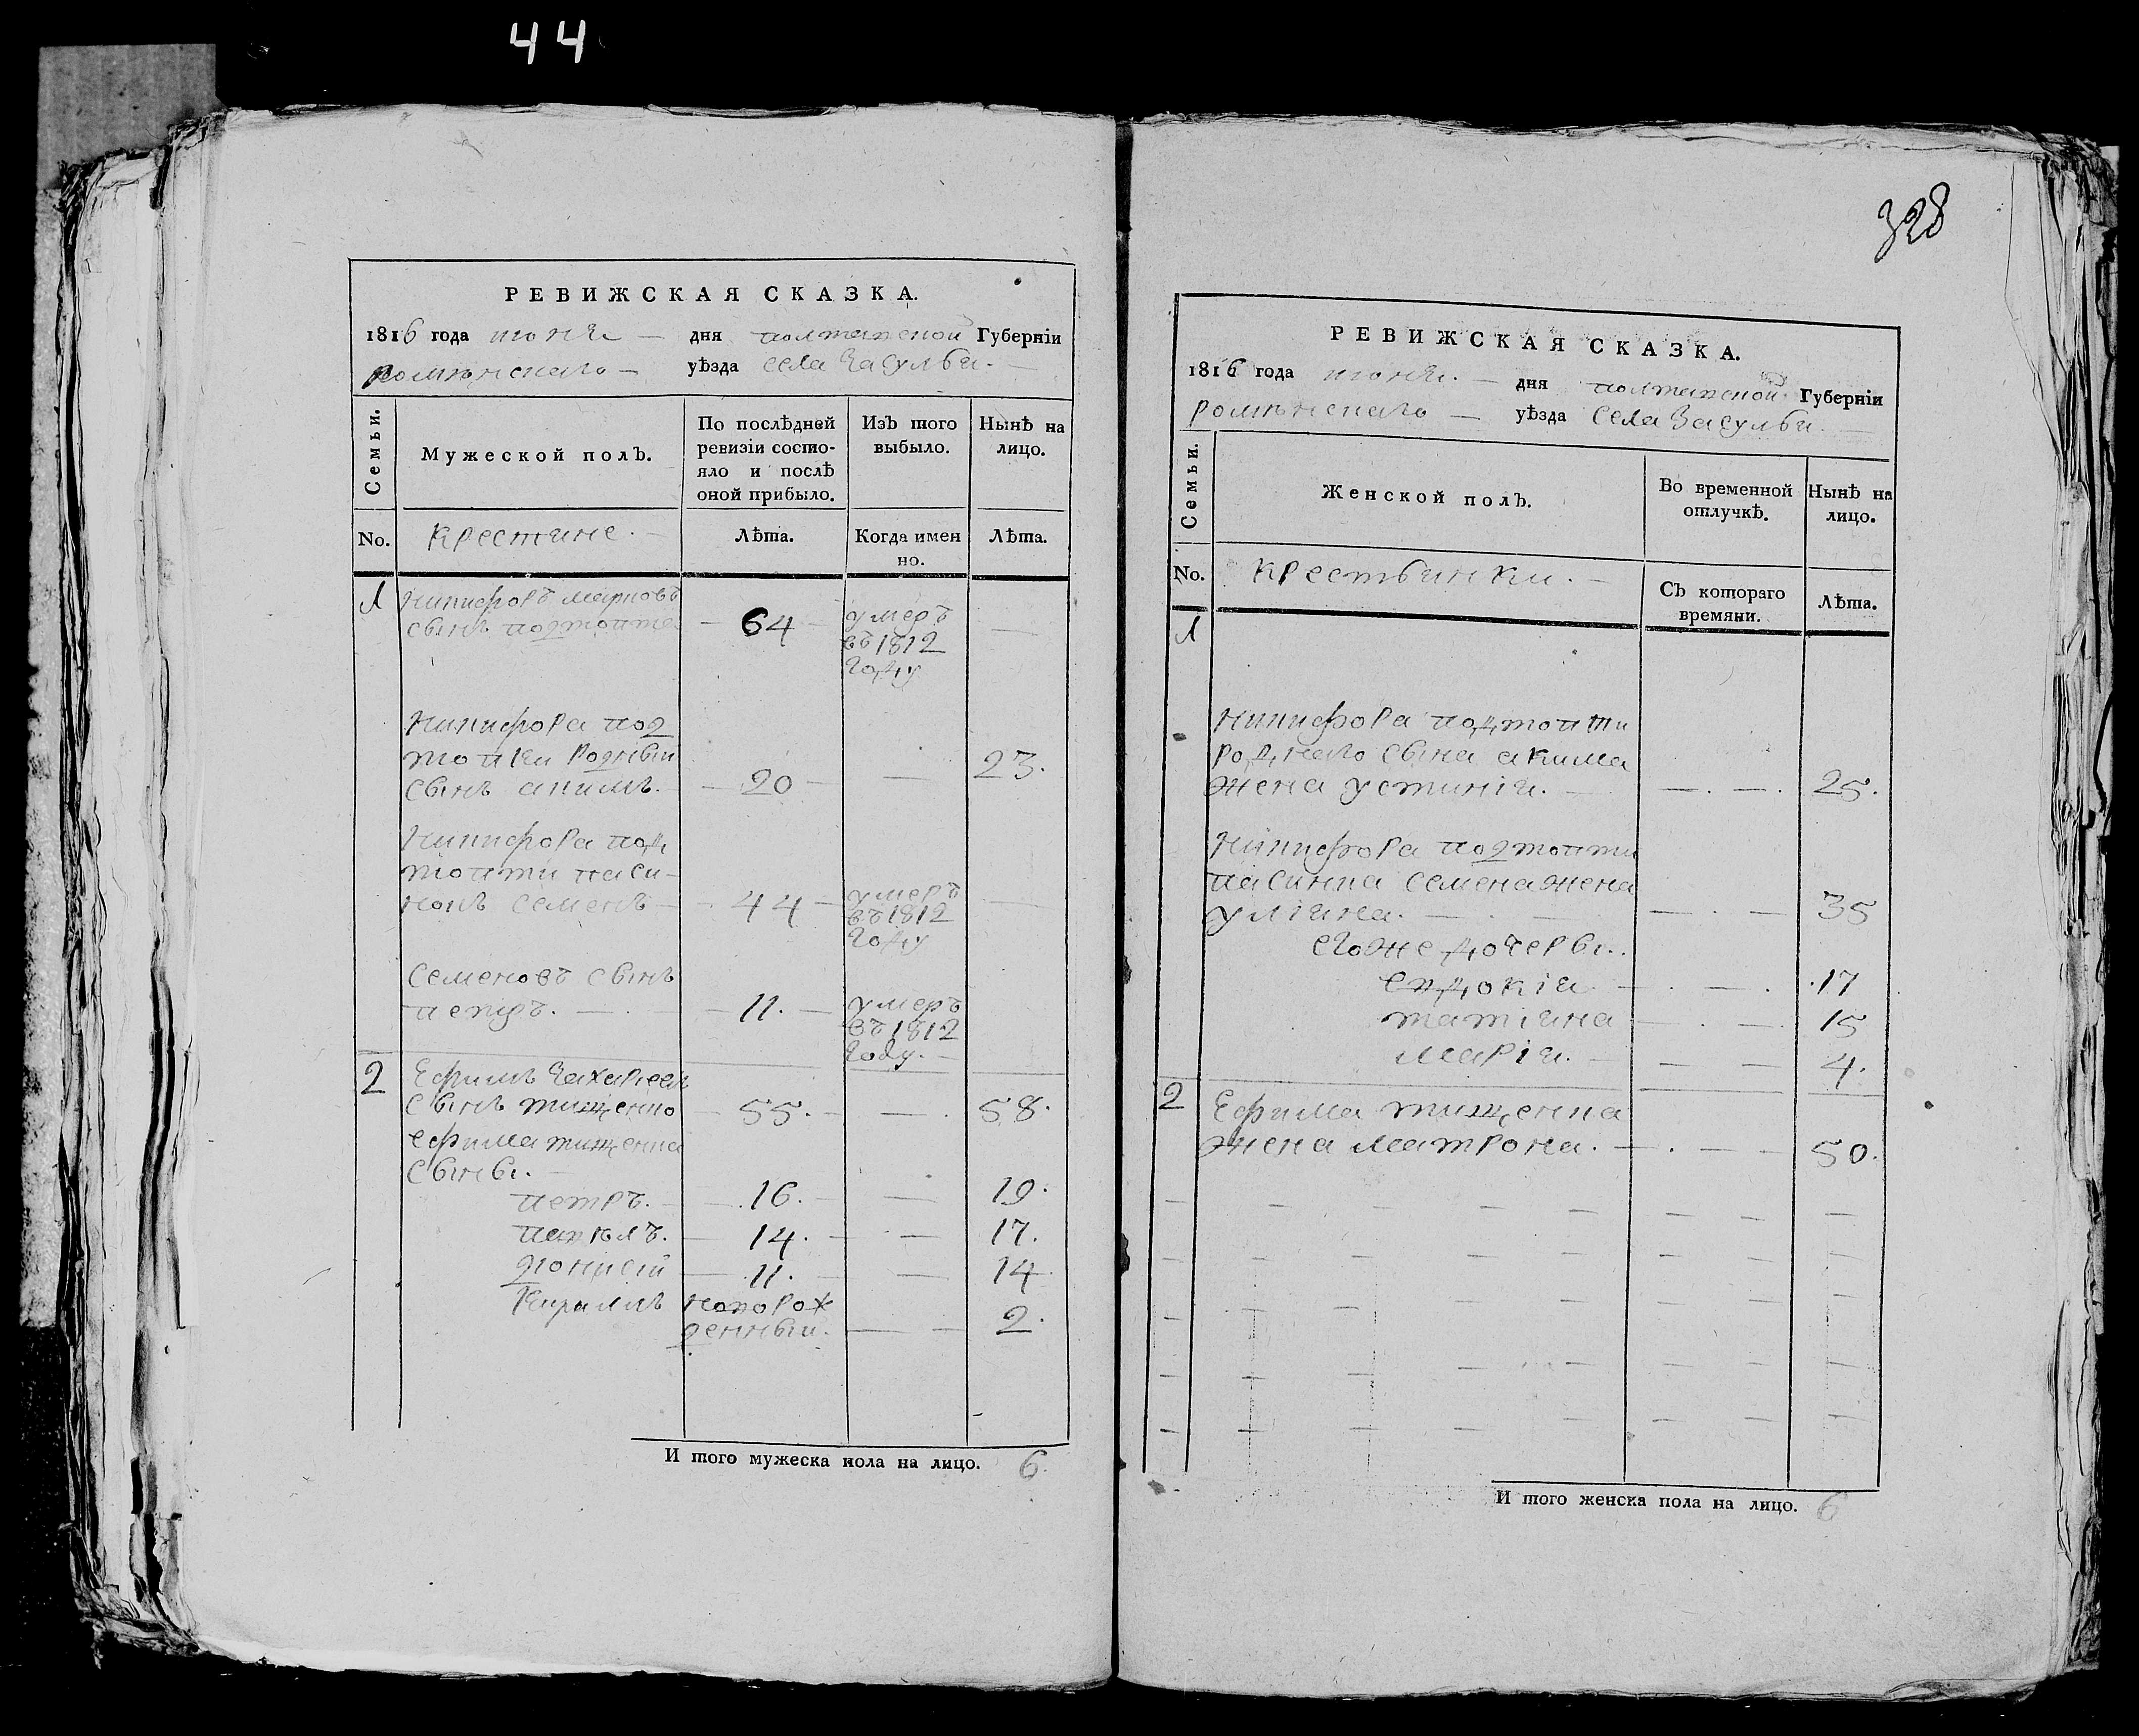 44
328
РЕВИЖСКАЯ СКАЗКА.
1816 года июня — дня полтавской Губерніи
роменскаго — уѣзда села Засулья.
Семьи.
Мужеской полъ.
По послѣдней ревизіи состо-
яло и послѣ
оной прибыло.
Изъ того
выбыло.
Нынѣ на
лицо.
No.
крестяне.
Лѣта.
Когда имен
но.
Лѣта.
1
Никифоръ марковъ
сынъ подтопта — 64 — умеръ
въ 1812
году
Никифора под
топки родный
сынъ акимъ. — 20 — — 23.
Никифора под
топти паси-
нокъ семенъ — 44 — умеръ
въ 1812
году
Семеновъ сынъ
петръ. — 11. — умеръ
въ 1812
году. —
2
Ефимъ Захариевъ
сынъ тищенко — 55. — — 58.
ефима тищенка
сыны.
петръ. — 16. — — 19.
павелъ. — 14. — — 17.
дионисій — 11. — — 14.
Кирилъ новорож
денный. — — 2.
И того мужеска пола на лицо. 6.
РЕВИЖСКАЯ СКАЗКА.
1816 года июня. — дня полтавской Губерніи
роменскаго — уѣзда села Засулья. —
Семьи.
Женской полъ.
Во временной
отлучкѣ.
Нынѣ на
лицо.
No.
крестьянки. —
Съ котораго
времяни.
Лѣта.
1
Никифора подтопти
роднаго сына акима
жена устинія. — — . — . 25.
Никифора подтопти
пасинка семена жена
улiяна. — . — — . — 35
егоже дочеры.
евдокія — . — . 17
татіяна — . — . 15
марія. — — — 4.
2
Ефима тищенка
жена матрона. — . — — 50.
И того женска пола на лицо. 6